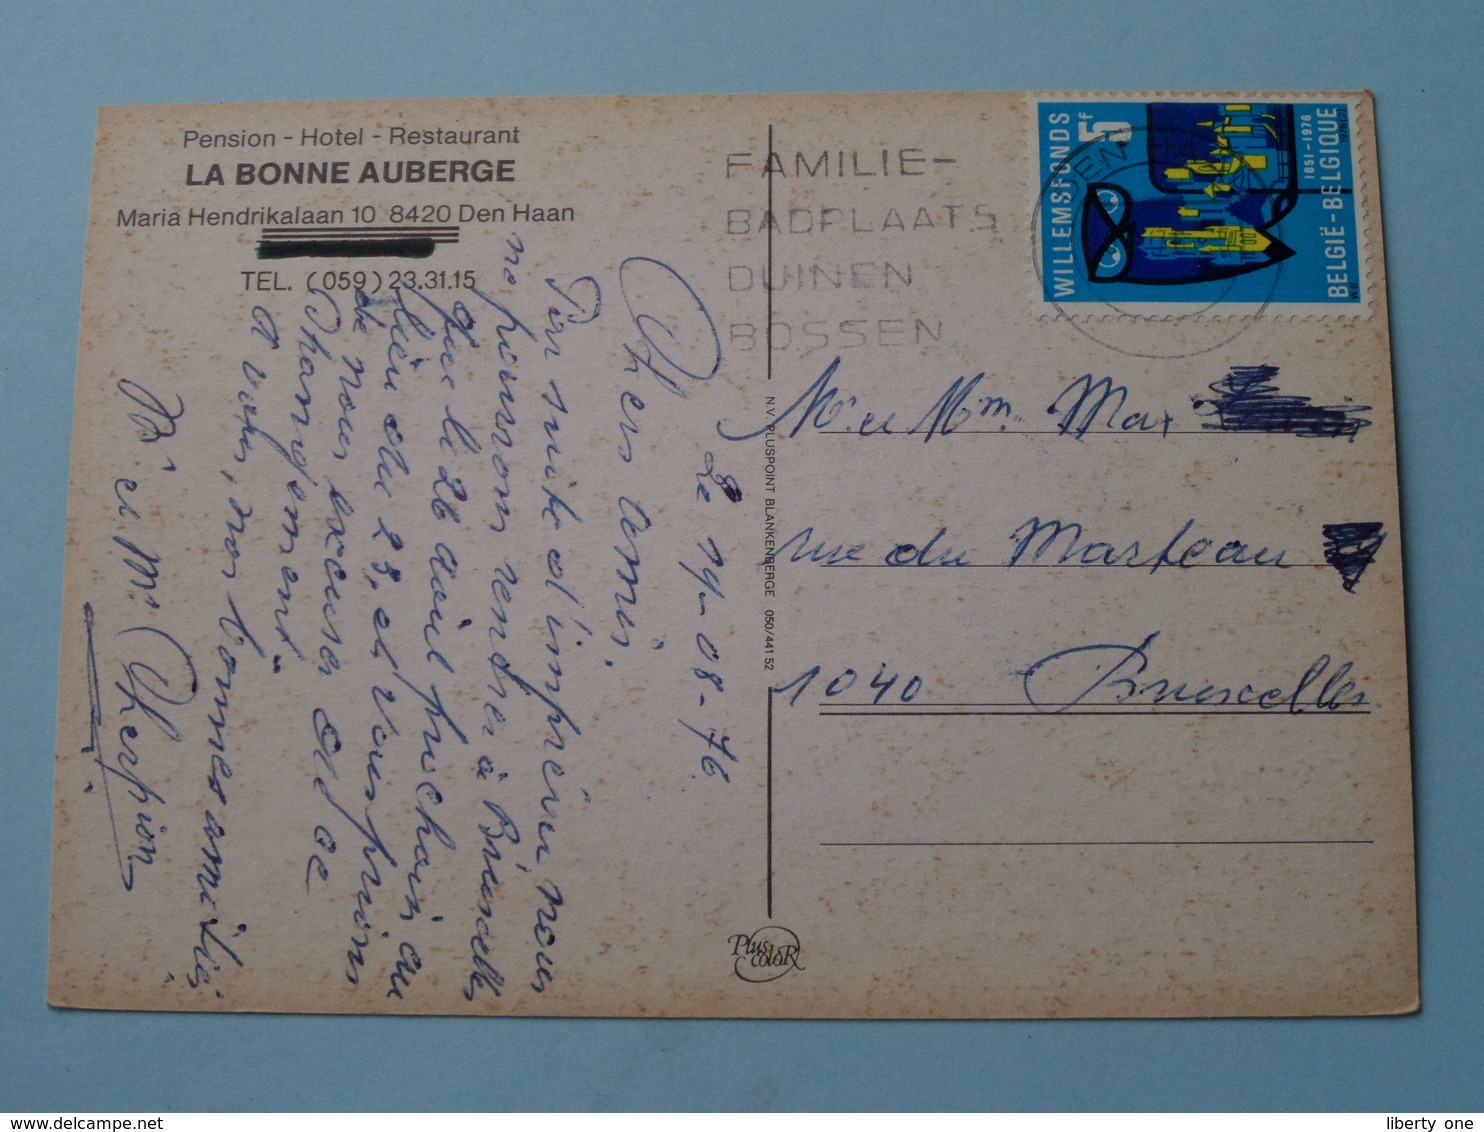 Pension - Hotel - Restaurant
LA BONNE AUBERGE
Maria Hendrikalaan 10 8420 Den Haan
TEL. (059) 23.31.15
FAMILIE-
BADPLAATS
DUINEN
BOSSEN
WILLEMSFONDS
5F
1851-1976
BELGIË-BELGIQUE
Le 19-08-76
Chers Amis,
Par suite d'imprévu nous
ne pourrons rendre à Bruxelles
que le 26 août prochain au
lieu du 25, et vous prions
de nous excuser de ce
Changement.
A vous, nos bonnes amitiés
Mr et Me Cherpion
N.V. PLUSPOINT BLANKENBERGE 050/441 52
Plus
coloR
Mr et Mme Max
rue du Marteau
1040 Bruxelles
liberty one